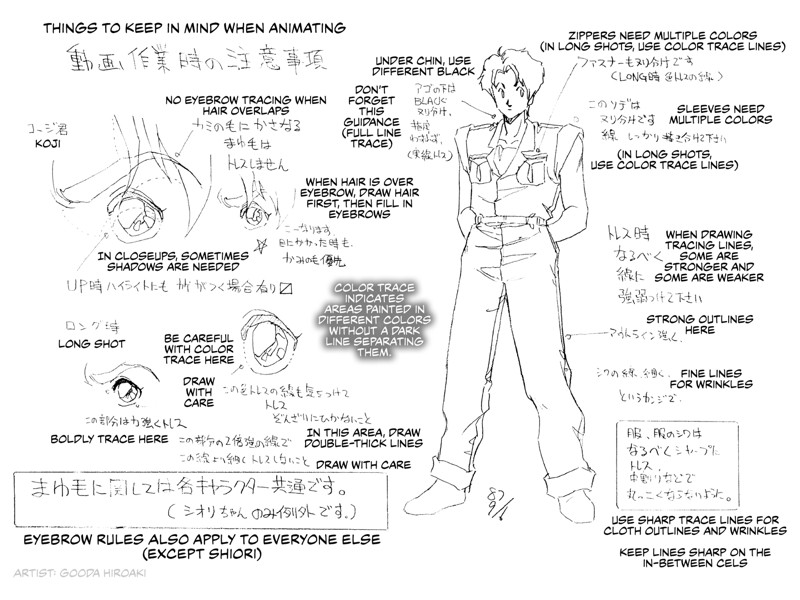 THINGS TO KEEP IN MIND WHEN ANIMATING
動画作業時の注意事項
コージ君
KOJI
NO EYEBROW TRACING WHEN
HAIR OVERLAPS
カミの毛にかさなる
まゆ毛は
トレスしません
WHEN HAIR IS OVER
EYEBROW, DRAW HAIR
FIRST, THEN FILL IN
EYEBROWS
こーなります
目にかかった時も、
かみの毛優先
IN CLOSEUPS, SOMETIMES
SHADOWS ARE NEEDED
UP時ハイライトにもカゲがつく場合有り
ロング時
LONG SHOT
BE CAREFUL
WITH COLOR
TRACE HERE.
DRAW
WITH
CARE
この色トレスの線も気をつけて
トレス
ぞんざいにひかないこと
この部分は力強くトレス
BOLDLY TRACE HERE
この部分の2倍強の線で
IN THIS AREA, DRAW
DOUBLE-THICK LINES
この線より細くトレスしないこと
DRAW WITH CARE
まゆ毛に関しては各キャラクター共通です。
(シオリちゃんのみ例外です。)
EYEBROW RULES ALSO APPLY TO EVERYONE ELSE
(EXCEPT SHIORI)
ARTIST: GOODA HIROAKI
UNDER CHIN, USE
DIFFERENT BLACK
アゴの下は
BLACK
ヌリ分け、
DON'T
FORGET
THIS
GUIDANCE
(FULL LINE
TRACE)
指定
わすれず、
(実線トレス)
COLOR TRACE
INDICATES
AREAS PAINTED IN
DIFFERENT COLORS
WITHOUT A DARK
LINE SEPARATING
THEM.
87
9/6
ZIPPERS NEED MULTIPLE COLORS
(IN LONG SHOTS, USE COLOR TRACE LINES)
ファスナーもヌリ分けです
(LONG時 色トレスの線)
このソデは
ヌリ分けです
線 しっかり
SLEEVES NEED
MULTIPLE COLORS
(IN LONG SHOTS,
USE COLOR TRACE LINES)
トレス時
なるべく
線に
強弱つけて下さい
WHEN DRAWING
TRACING LINES,
SOME ARE
STRONGER AND
SOME ARE WEAKER
STRONG OUTLINES
HERE
アウトライン強く、
シワの線、細く、
というカンジで、
FINE LINES
FOR WRINKLES
服、服のシワは
なるべくシャープに
トレス、
中割りなどで
丸っこくならないように。
USE SHARP TRACE LINES FOR
CLOTH OUTLINES AND WRINKLES
KEEP LINES SHARP ON THE
IN-BETWEEN CELS